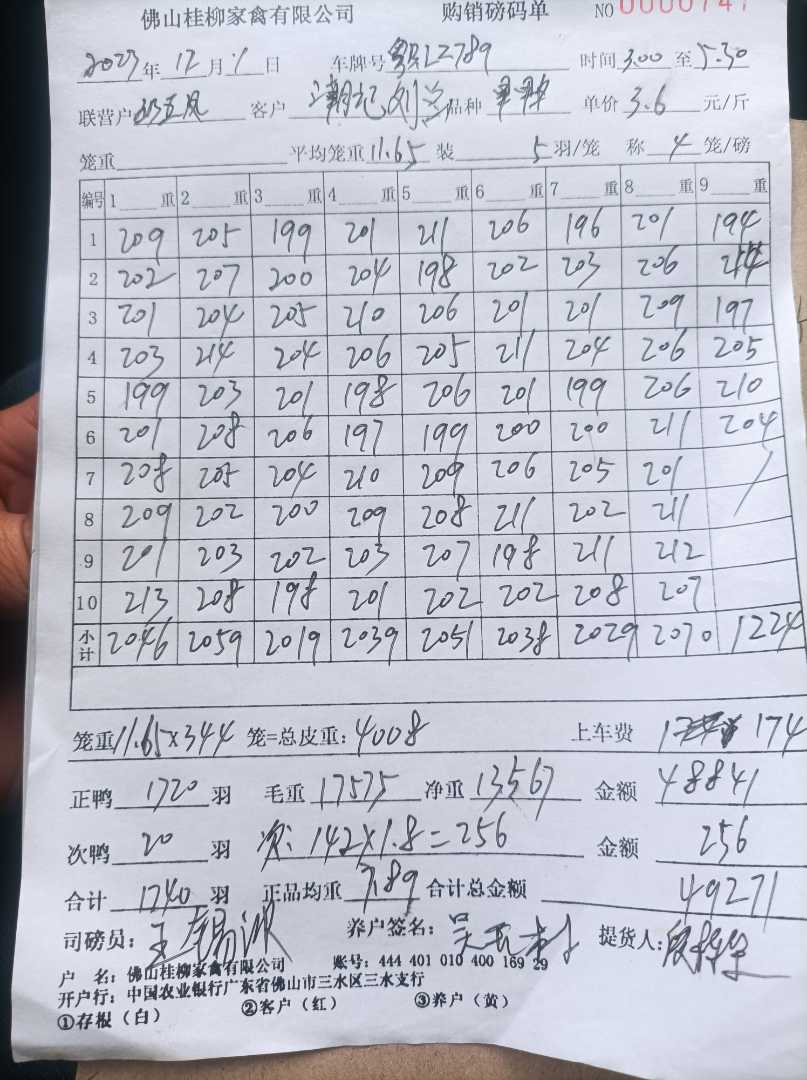 佛山桂柳家禽有限公司 购销磅码单 NO 0000747
2023年 12月 1日 车牌号 粤LZ789 时间 3.00 至 5.30
联营户 客户 品种 单价 3.6 元/斤
笼重 平均笼重 11.65 装 5 羽/笼 称 4 笼/磅
编号 1 重 2 重 3 重 4 重 5 重 6 重 7 重 8 重 9 重
1 209 205 199 201 211 206 196 201 194
2 202 207 200 204 198 202 203 206 214
3 201 204 205 210 206 201 201 209 197
4 203 214 204 206 205 211 204 206 205
5 199 203 201 198 206 201 199 206 210
6 201 208 206 197 199 200 200 211 204
7 208 205 204 210 209 206 205 201
8 209 202 200 209 208 211 202 211
9 201 203 202 203 207 198 211 212
10 213 208 198 201 202 202 208 207
小计 2046 2059 2019 2039 2051 2038 2029 2070 1224
笼重 11.65×344 笼=总皮重: 4008 上车费 174
正鸭 1720 羽 毛重 17575 净重 13567 金额 48841
次鸭 20 羽 次: 142×1.8=256 金额 256
合计 1740 羽 正品均重 7.89 合计总金额 49271
司磅员: 王锡波 养户签名: 提货人:
户 名: 佛山桂柳家禽有限公司 账号: 444 401 010 400 169 29
开户行: 中国农业银行广东省佛山市三水区三水支行
①存根（白） ②客户（红） ③养户（黄）